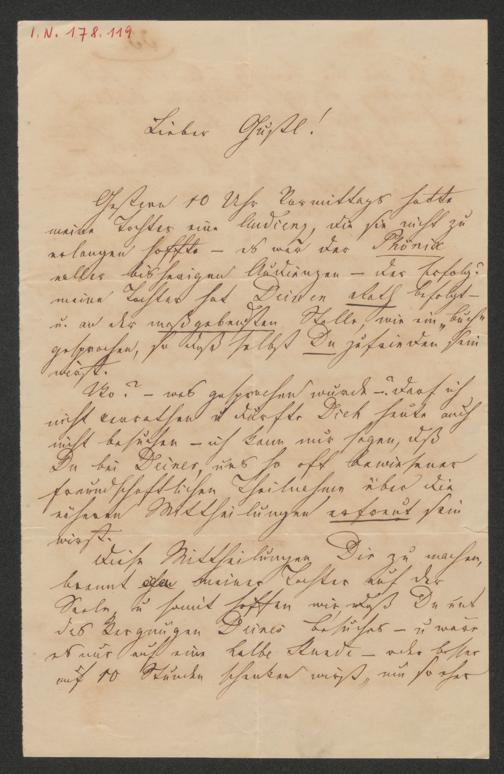 I. N. 178.119
Lieber Gustl!
Gestern 10 Uhr Vormittags hatte
meine Tochter eine Audienz, die sie nicht zu
erlangen hoffte – es war der Phönix
aller bisherigen Audienzen – der Erfolg?
meine Tochter hat Deinen Rath befolgt –
u. an der maßgebendsten Stelle, wie ein „Buch"
gesprochen, so daß selbst Du zufrieden sein
wirst.
Wo? – was gesprochen wurde –? darf ich
nicht verrathen u dürfte Dich heute auch
nicht besuchen – ich kann nur sagen, daß
Du bei Deiner, uns so oft bewiesener
freundschaftlichen Theilnahme über die
näheren Mittheilungen erfreut sein
wirst.
Diese Mittheilungen Dir zu machen,
brennt meiner Tochter auf der
Seele, u somit hoffen wir daß Du uns
das Vergnügen Deines Besuches – u wäre
es nur auf eine halbe Stunde – oder besser
auf 10 Stunden schenken wirst, um so eher